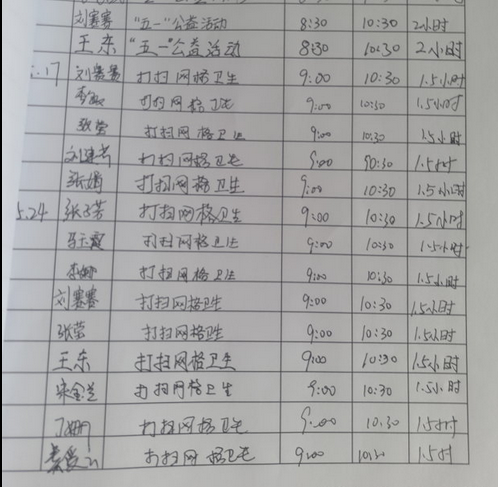 刘赛赛 "五一"公益活动 8:30 10:30 2小时
王东 "五一"公益活动 8:30 10:30 2小时
5.17 刘赛赛 打扫网格卫生 9:00 10:30 1.5小时
打扫网格卫生 9:00 10:30 1.5小时
张莹 打扫网格卫生 9:00 10:30 1.5小时
打扫网格卫生 9:00 10:30 1.5小时
张娟 打扫网格卫生 9:00 10:30 1.5小时
5.24 张子芳 打扫网格卫生 9:00 10:30 1.5小时
打扫网格卫生 9:00 10:30 1.5小时
李娜 打扫网格卫生 9:00 10:30 1.5小时
刘赛赛 打扫网格卫生 9:00 10:30 1.5小时
张莹 打扫网格卫生 9:00 10:30 1.5小时
王东 打扫网格卫生 9:00 10:30 1.5小时
宋金兰 打扫网格卫生 9:00 10:30 1.5小时
丁姗 打扫网格卫生 9:00 10:30 1.5小时
打扫网格卫生 9:00 10:30 1.5小时